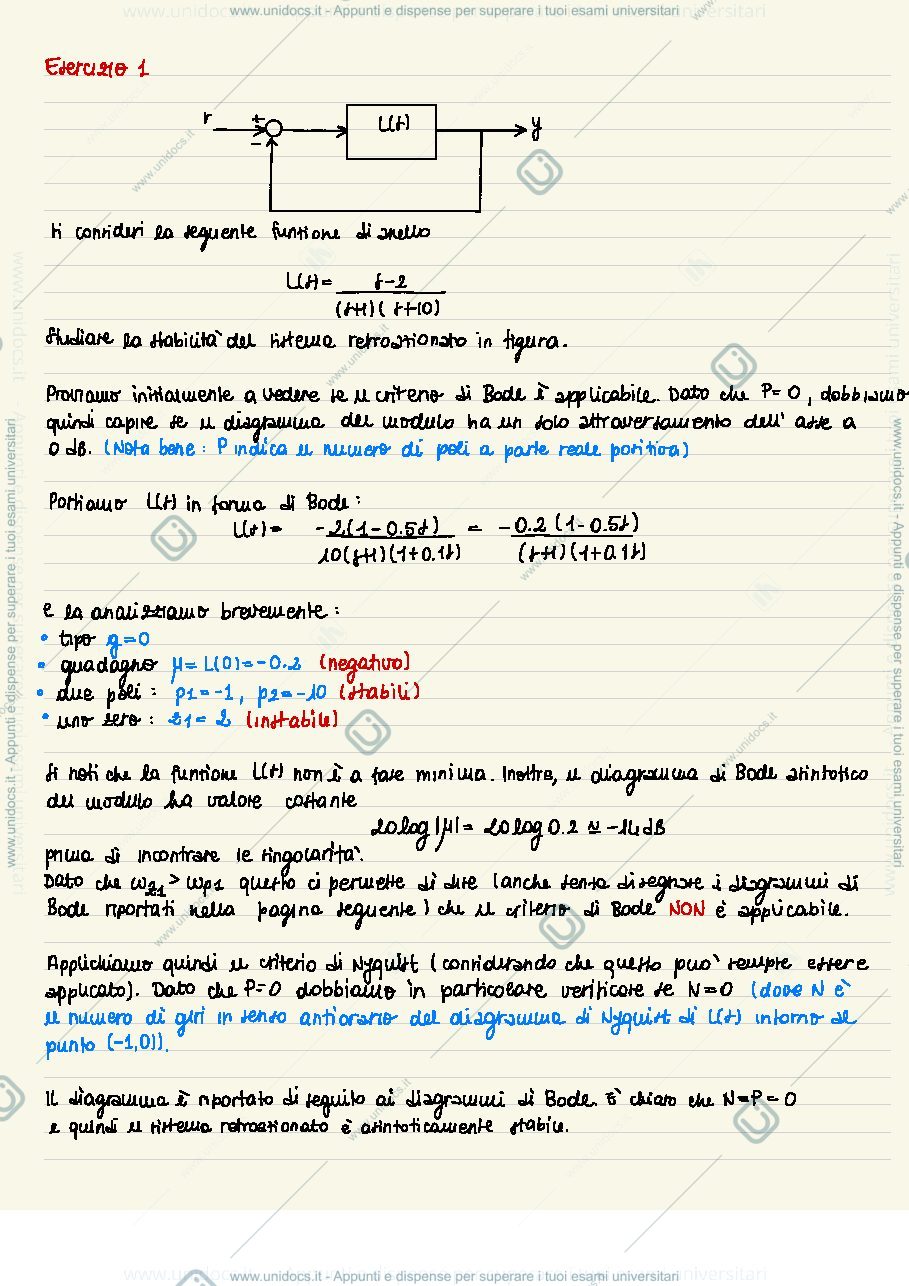 www.unidocs.it - Appunti e dispense per superare i tuoi esami universitari
Esercizio 1
r + - L(s) y
Si consideri la seguente funzione di anello
L(s) = s-2
(s+1)(s+10)
Studiare la stabilità del sistema retroazionato in figura.
Proviamo inizialmente a vedere se il criterio di Bode è applicabile. Dato che P=0, dobbiamo
quindi capire se il diagramma del modulo ha un solo attraversamento dell'asse a
0 dB. (Nota bene: P indica il numero di poli a parte reale positiva)
Portiamo L(s) in forma di Bode:
L(s) = -2(1-0.5s) = -0.2(1-0.5s)
10(s+1)(1+0.1s) (s+1)(1+0.1s)
e la analizziamo brevemente:
• tipo g=0
• guadagno μ=L(0)=-0.2 (negativo)
• due poli: p1=-1, p2=-10 (stabili)
• uno zero: z1=2 (instabile)
Si noti che la funzione L(s) non è a fase minima. Inoltre, il diagramma di Bode asintotico
del modulo ha valore costante
20log|μ| = 20log0.2 ≃ -14dB
prima di incontrare le singolarità.
Dato che ωz1 > ωp1 questo ci permette di dire (anche senza disegnare i diagrammi di
Bode riportati nella pagina seguente) che il criterio di Bode NON è applicabile.
Applichiamo quindi il criterio di Nyquist (considerando che questo può sempre essere
applicato). Dato che P=0 dobbiamo in particolare verificare se N=0 (dove N è
il numero di giri in senso antiorario del diagramma di Nyquist di L(s) intorno al
punto (-1,0)).
Il diagramma è riportato di seguito ai diagrammi di Bode. È chiaro che N=P=0
e quindi il sistema retroazionato è asintoticamente stabile.
www.unidocs.it - Appunti e dispense per superare i tuoi esami universitari